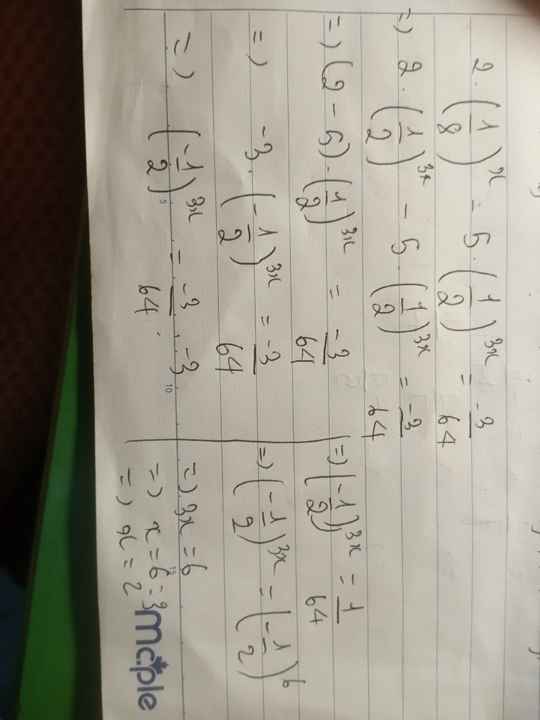 2 · (1/8)^x - 5 · (1/2)^3x = -3/64
=) 2 · (1/2)^3x - 5 · (1/2)^3x = -3/64
=) (2 - 5) · (1/2)^3x = -3/64
=) -3 · (-1/2)^3x = -3/64
=) (-1/2)^3x = -3/64 -3
=) (-1/2)^3x = 1/64
=) (-1/2)^3x = (-1/2)^6
=) 3x = 6
=) x = 6 : 3
=) x = 2
maple